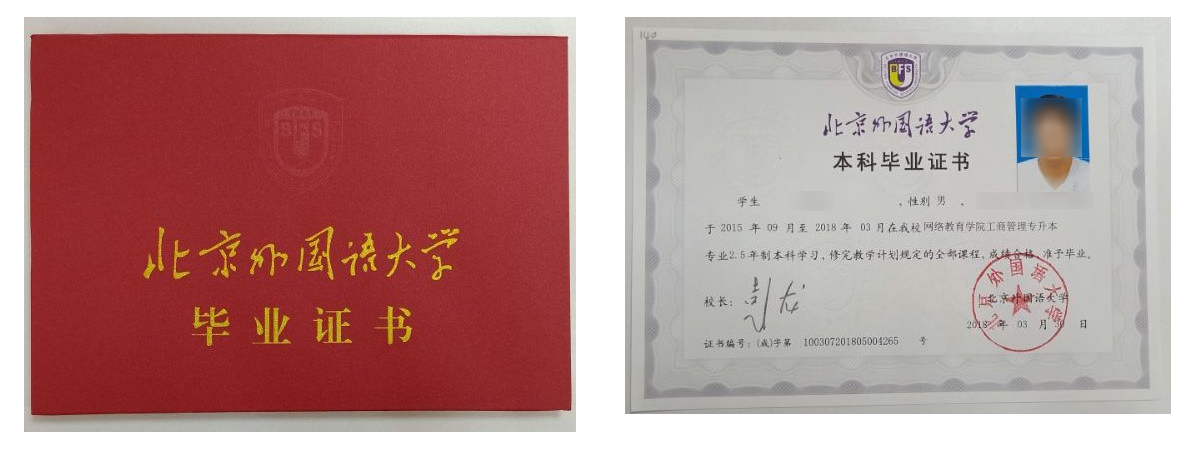 BFS
北京外国语大学
毕业证书
140
BFS
北京外国语大学
本科毕业证书
学生 、性别 男 、
于 2015 年 09 月至 2018 年 03 月在我校 网络教育学院工商管理专升本
专业2.5年制本科学习、修完教学计划规定的全部课程,成绩合格,准予毕业。
校长:
北京外国语大学
北京外国语大学
2018 年 03 月 30 日
证书编号:(成)字第 100307201805004265 号